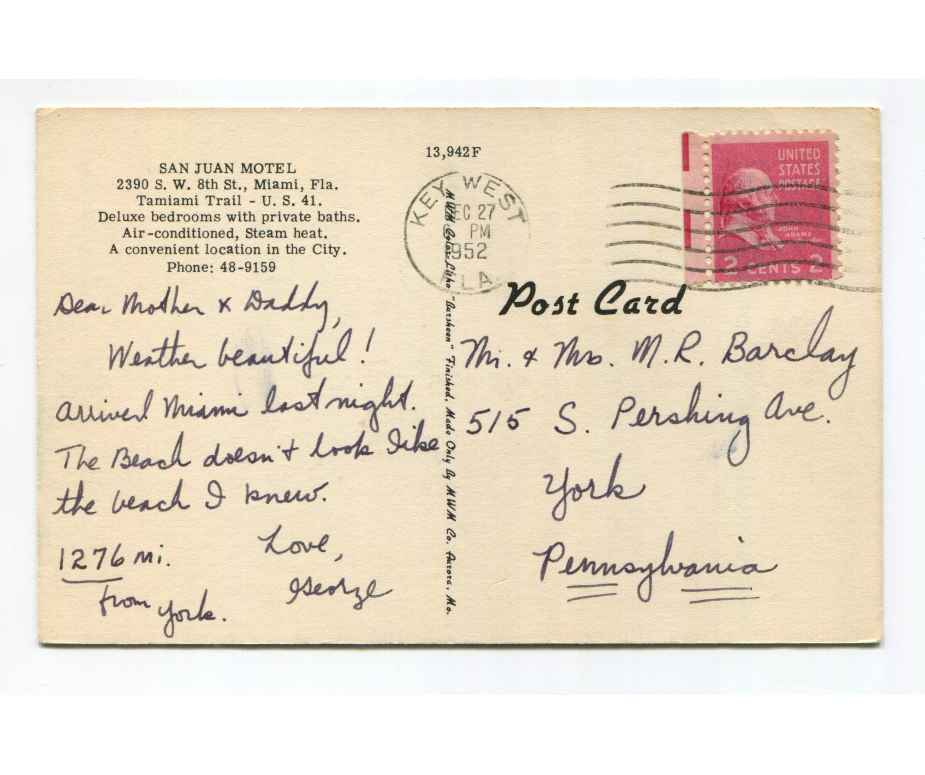 SAN JUAN MOTEL
2390 S. W. 8th St., Miami, Fla.
Tamiami Trail - U. S. 41.
Deluxe bedrooms with private baths.
Air-conditioned, Steam heat.
A convenient location in the City.
Phone: 48-9159
Dear Mother & Daddy,
Weather beautiful!
Arrived Miami last night.
The Beach doesn't look like
the beach I knew.
1276 mi.
from York.
Love,
George
13,942F
KEY WEST
DEC 27
PM
1952
FLA.
MWM Color-Litho "Aursheen" Finished. Made Only By MWM Co. Aurora, Mo.
UNITED
STATES
POSTAGE
JOHN
ADAMS
2 CENTS 2
Post Card
Mr. & Mrs. M. R. Barclay
515 S. Pershing Ave.
York
Pennsylvania